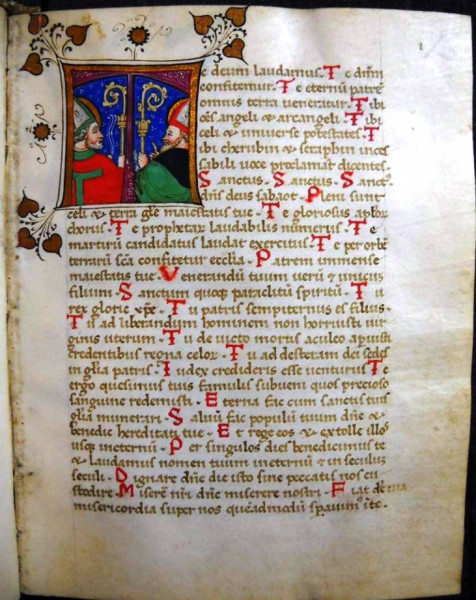 1
Te deum laudamus. Te dnm
confitemur. Te eternu patre
omnis terra ueneratur. Tibi
oes angeli & arcangeli Tibi
celi & uniuerse potestates. Tibi
tibi cherubin & seraphin inces
sabili uoce proclamat dicentes.
Sanctus. Sanctus. Sanct
dns deus sabaot. Pleni sunt
celi & terra gle maiestatis tue. Te gloriosus aplor
chorus. Te prophetar laudabilis numerus. Te
martiru candidatus laudat exercitus. Te per orbe
terraru sca confitetur ecclia. Patrem inmense
maiestatis tue. Venerandu tuum ueru & unicu
filium. Sanctum quoq paraclitu spiritu. Tu
rex glorie xpe. Tu patris sempiternus es filius.
Tu ad liberandum hominem non horruisti uir
ginis uterum. Tu deuicto mortis aculeo apuisti
credentibus regna celor. Tu ad desteram dei sedes
in glia patris. Iudex crederis esse uenturus. Te
ergo quesumus tuis famulis subueni quos precioso
sanguine redemisti. Eterna fac cum sanctis tuis
glia munerar. Saluu fac populu tuum dne &
benedic hereditati tue. Et rege eos & extolle illos
usq ineternu. Per singulos dies benedicimus te
& laudamus nomen tuum ineternu & in seculu
seculi. Dignare dne die isto sine peccatis nos cu
stodire. Misere nri dne miserere nostri. Fiat dne
misericordia super nos queadmodu sperauim ite.